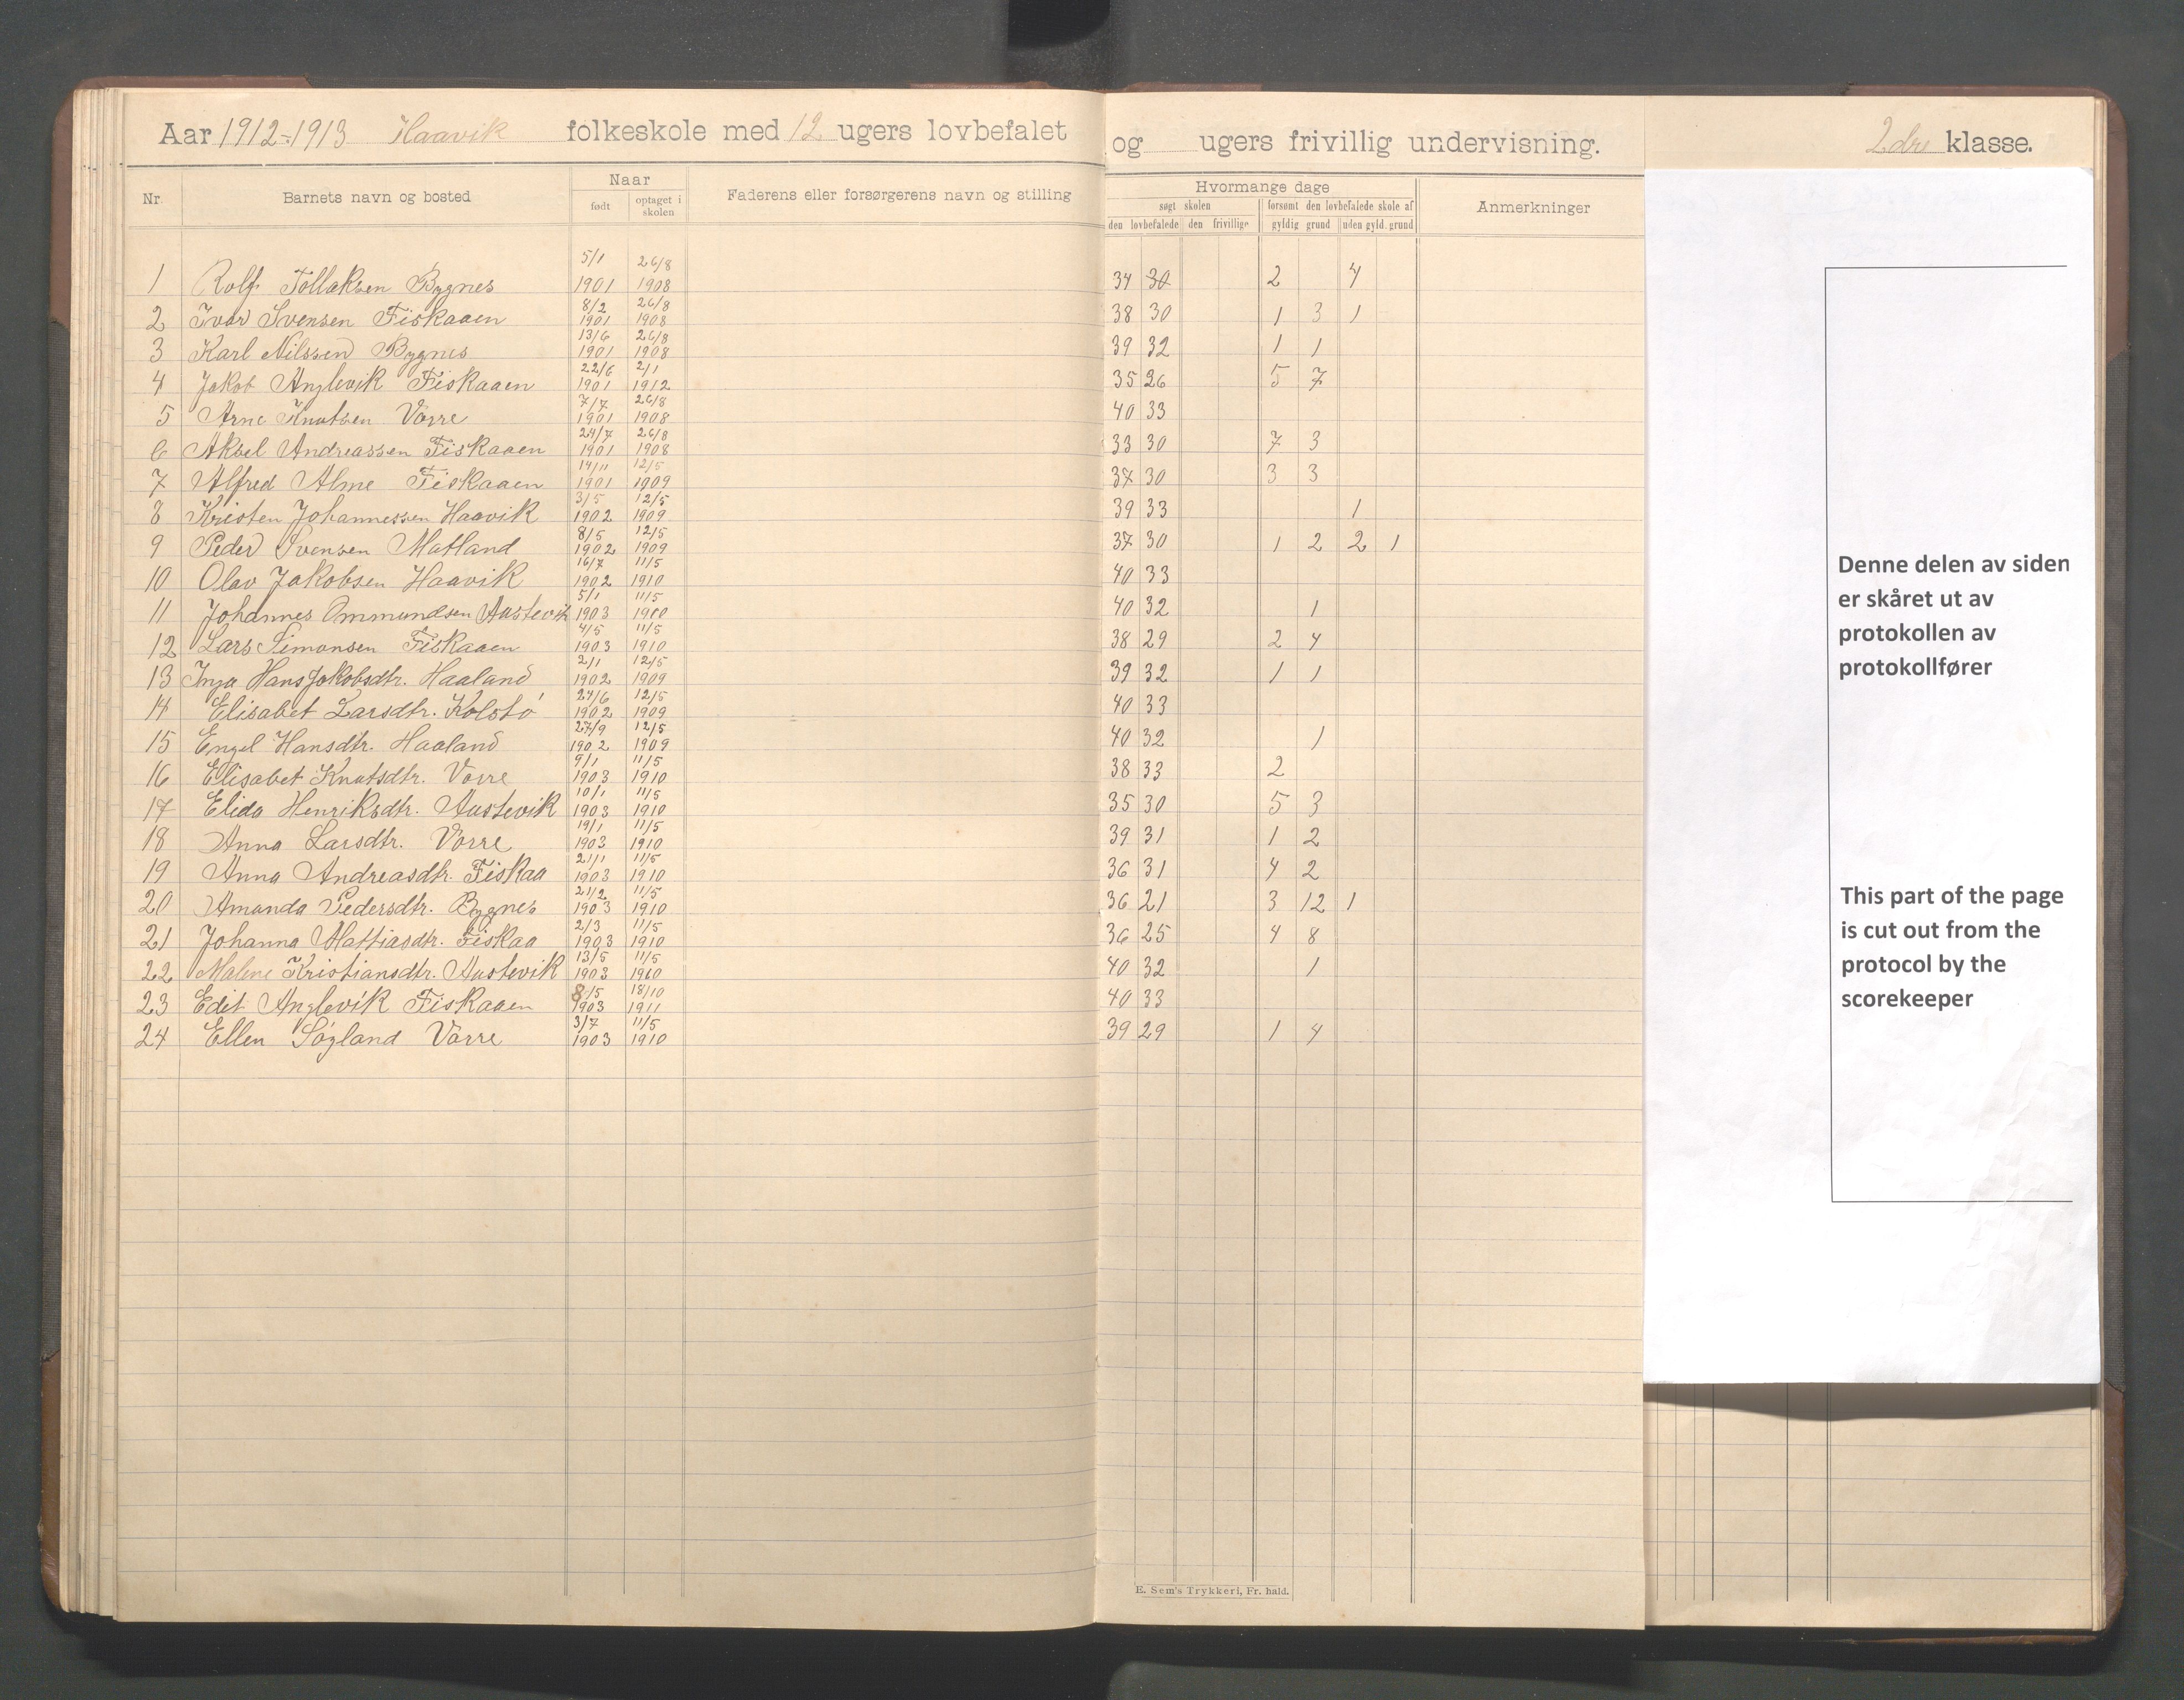 Aar 1912-1913 Haavik folkeskole med 12 ugers lovbefalet og ugers frivillig undervisning. 2den klasse.
Nr. Barnets navn og bosted Naar Faderens eller forsørgerens navn og stilling Hvormange dage Anmerkninger
født optaget i skolen søgt skolen forsømt den lovbefalede skole af
den lovbefalede den frivillige gyldig grund uden gyld. grund
1 Rolf Tollaksen Bygnes 5/1 1901 26/8 1908 34 30 2 4
2 Ivar Svensen Fiskaaen 8/2 1901 26/8 1908 38 30 1 3 1
3 Karl Nilssen Bygnes 13/6 1901 26/8 1908 39 32 1 1
4 Jakob Anglevik Fiskaaen 22/6 1901 2/1 1912 35 26 5 7
5 Arne Knutsen Vorre 7/7 1901 26/8 1908 40 33
6 Aksel Andreassen Fiskaaen 24/7 1901 26/8 1908 33 30 7 3
7 Alfred Alme Fiskaaen 14/11 1901 12/5 1909 37 30 3 3
8 Kristen Johannessen Haavik 3/5 1902 12/5 1909 39 33 1
9 Peder Svensen Matland 8/5 1902 12/5 1909 37 30 1 2 2 1
10 Olav Jakobsen Haavik 16/7 1902 11/5 1910 40 33
11 Johannes Ommundsen Austevik 5/1 1903 11/5 1910 40 32 1
12 Lars Simonsen Fiskaaen 4/5 1903 11/5 1910 38 29 2 4
13 Inga Hans Jakobsdtr. Haaland 2/1 1902 12/5 1909 39 32 1 1
14 Elisabet Larsdtr. Kolstø 24/6 1902 12/5 1909 40 33
15 Engel Hansdtr. Haaland 27/9 1902 12/5 1909 40 32 1
16 Elisabet Knutsdtr. Vorre 9/1 1903 11/5 1910 38 33 2
17 Elida Henriksdtr. Austevik 10/1 1903 11/5 1910 35 30 5 3
18 Anna Larsdtr. Vorre 19/1 1903 11/5 1910 39 31 1 2
19 Anna Andreasdtr. Fiskaa 21/1 1903 11/5 1910 36 31 4 2
20 Amanda Pedersdtr. Bygnes 21/2 1903 11/5 1910 36 21 3 12 1
21 Johanna Mattiasdtr. Fiskaa 2/3 1903 11/5 1910 36 25 4 8
22 Malene Kristiansdtr. Austevik 13/5 1903 11/5 1910 40 32 1
23 Edit Anglevik Fiskaaen 8/5 1903 18/10 1911 40 33
24 Ellen Søgland Vorre 3/7 1903 11/5 1910 39 29 1 4
E. Sem's Trykkeri, Fr. hald.
Denne delen av siden
er skåret ut av
protokollen av
protokollfører
This part of the page
is cut out from the
protocol by the
scorekeeper